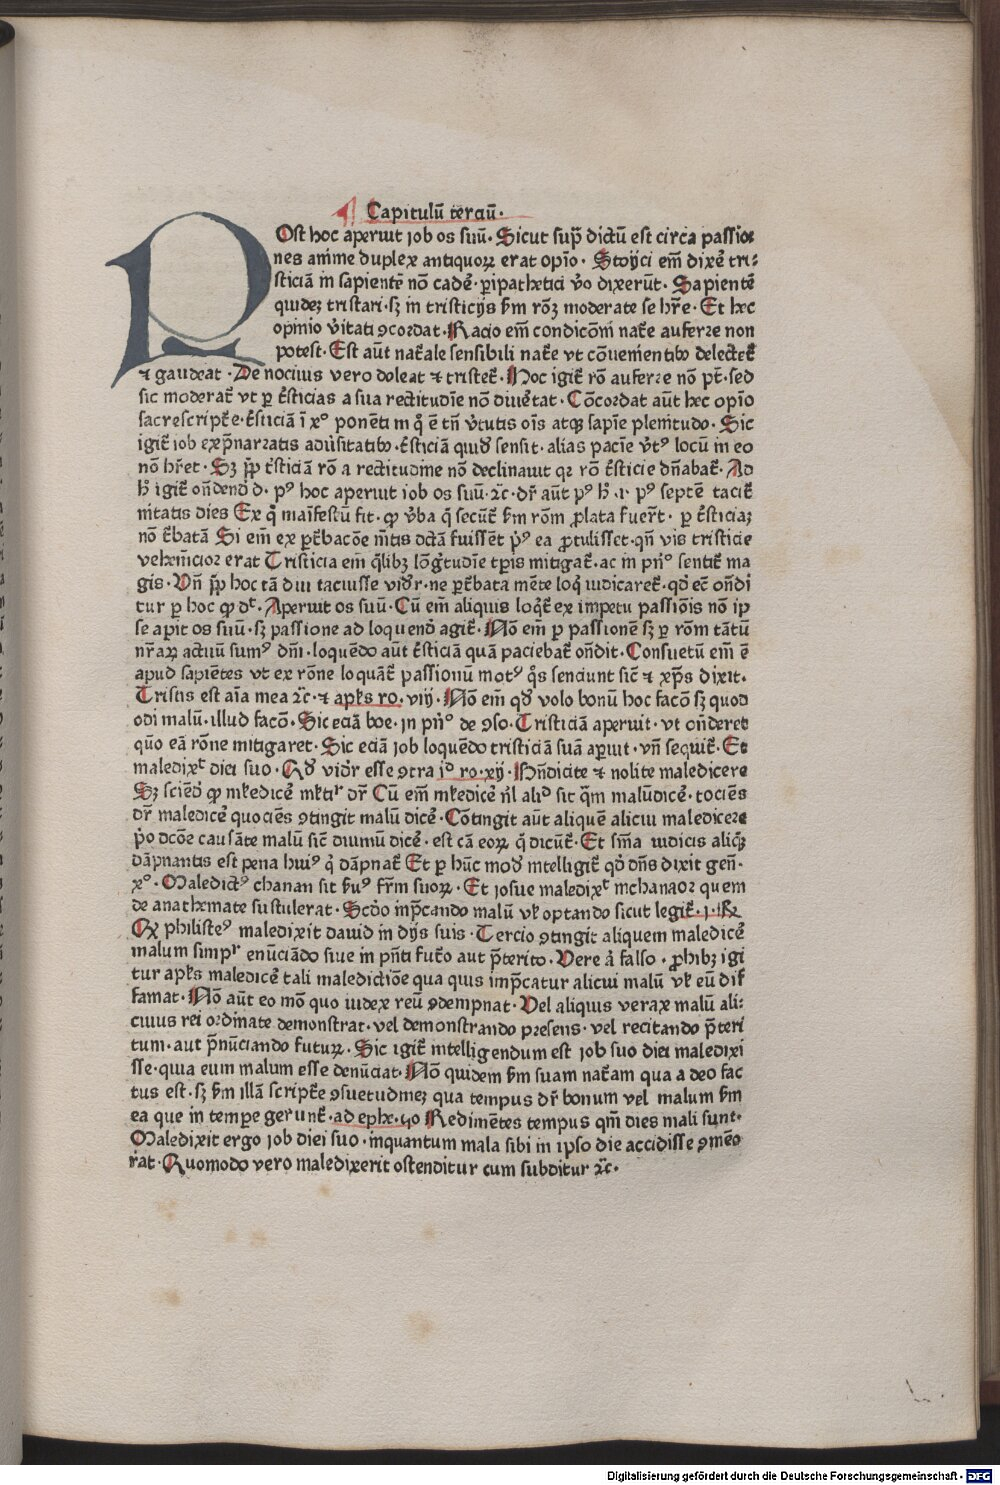 Capitulū terciū·
POst hoc aperuit iob os suū· Sicut sup̄ dictū est circa passio
nes anime duplex antiquoꝝ erat opīo· Stoyci em̄ dixēt tri-
sticiā in sapientē nō cadē· ꝑipathetici v̓o dixerūt· Sapientē
quideꝫ tristari· sꝫ in tristicijs ẜm rōꝫ moderate se hr̄e· Et hec
opinio v̓itati ꝯcordat· Racio em̄ condicōni nat̓e auferre non
potest· Est aūt nat̓ale sensibili nat̓e vt cōuenientibꝰ delectet̓
⁊ gaudeat· De nociuis vero doleat ⁊ tristet̓· Hoc igit̓ rō auferre nō pt̄· sed
sic moderat̓ vt ꝑ t̓sticias a sua rectitudīe nō diuertat· Cōcordat aūt hec opīo
sacrescript̓e· t̓sticiā ī xº ponēti in q̓ ē tn̄ v̓tutis oīs atqꝫ sapīe plenitudo· Sic
igit̓ iob ex p̄narratis aduersitatibꝰ· t̓sticiā quid̓ sensit· alias pacīe v̓tꝰ locū in eo
nō hr̄et· Sꝫ ꝓp̄ t̓sticiā rō a rectitudine nō declinauit qꝛ rō t̓sticie dn̄abat̓· Ad
h̓ igit̓ on̄dend̓ d· pꝰ hoc aperuit iob os suū· ⁊c̄· dr̄ aūt pꝰ h̓ ·i· pꝰ septē tacit̓
nitatis dies Ex q̓ manifestū fit· ꝙ v̓ba q̓ secūt̓ ẜm rōm ꝓlata fuer̄t· ꝑ t̓sticiaꝫ
nō t̓batā Si em̄ ex ꝑt̓bacōe mētis dctā fuissēt pꝰ ea ꝓtulisset· qn̄ vis tristicie
vehemēcior erat Tristicia em̄ q̓libꝫ lōgitudīe tꝑis mitigat̓· ac in pn̓º sentit̓ ma
gis· Vn̄ ꝓp̄ hoc tā diu tacuisse vid̓r· ne ꝑt̓bata mēte loq̓ iudicaret̓· qd̓ ec̄ on̄di
tur ꝑ hoc ꝙ dt̄· Aperuit os suū· Cū em̄ aliquis loqt̓ ex impetu passiōis nō ip
se aꝑit os suū· sꝫ passione ad loquend̓ agit̓· Nō em̄ ꝑ passionē sꝫ ꝑ rōm tātū
nr̄aꝝ actuū sumꝰ dn̄i· loquēdo aūt t̓sticiā quā paciebat̓ on̄dit· Consuetū em̄ ē
apud sapiētes vt ex rōne loquāt̓ passionū motꝰ q̓s senciunt sic̄ ⁊ xp̄s dixit·
Tristis est aīa mea ⁊c̄· ⁊ apl̓s ro· vij· Nō em̄ qd̓ volo bonū hoc facō sꝫ quod
odi malū· illud facō· Sic eciā boe· in pn̓º de ꝯso· Tristiciā aperuit· vt on̄deret
quō eā rōne mitigaret· Sic eciā iob loquēdo tristiciā suā aꝑuit· vn̄ sequit̓· Et
maledixᵗ diei suo· Qd̓ vid̓r esse ꝯtra id̓ ro· xij· Bn̄dicite ⁊ nolite maledicere
Sꝫ sciēd̓ ꝙ ml̓edicē ml̓tiʳ dr̄ Cū em̄ ml̓edicē nl̓ alid̓ sit q̄m malū dicē· tociēs
dr̄ maledicē quociēs ꝯtingit malū dicē· Cōtingit aūt aliquē alicui maledicere
pº dcōe causāte malū sic̄ diuinū dicē· est cā eoꝝ q̓ dicūt̓· Et sn̄ia iudicis aliqꝫ
dāpnantis est pena huiꝰ q̓ dāpnat̓ Et ꝑ hūc mod̓ intelligit̓ qd̓ dn̄s dixit gen̄·
xº· Maledictꝰ chanan sit ẜuꝰ fr̄m suoꝝ· Et iosue maledixᵗ in chanaor quem
de anathemate sustulerat· Scd̓o imp̄cando malū vl̓ optando sicut legit̓· j· R̄
Qꝫ philisteꝰ maledixit dauid in dijs suis· Tercio ꝯtingit aliquem maledicē
malum simpʳ enūciādo siue in pn̄ti fut̓o aut p̄terito· Vere a̓ falso· ꝓhibꝫ igi
tur apl̓s maledicē tali maledictiōe qua quis imp̄catur alicui malū vl̓ eū dif
famat· Nō aūt eo mō quo iudex reū ꝯdempnat· Vel aliquis verax malū ali-
cuius rei ordinate demonstrat· vel demonstrando presens· vel recitando p̄teri
tum· aut p̄nūciando futuꝝ· Sic igit̓ intelligendum est iob suo diei maledixi
sse· quia eum malum esse denūciat· Nō quidem ẜm suam nat̓am qua a deo fac
tus est· sꝫ ẜm illā script̓e ꝯsuetudineꝫ qua tempus dr̄ bonum vel malum ẜm
ea que in tempe gerunt̓· ad ephe· 4o Redimētes tempus qm̄ dies mali sunt·
Maledixit ergo iob diei suo· inquantum mala sibi in ipso die accidisse ꝯmēo
rat· Quomodo vero maledixerit ostenditur cum subditur ⁊c̄·
Digitalisierung gefördert durch die Deutsche Forschungsgemeinschaft - DFG